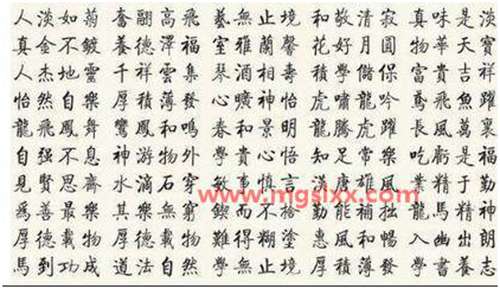 人淡如菊 奮翮高飛 藝無止境 和敬清寂 真味是淡
真金不鍍 養德澤福 室雅蘭馨 花好月圓 物華天寶
人杰地靈 千祥雲集 琴 相壽 積學儲 富貴吉祥
怡然自樂 厚積薄發 心曠神怡 虎嘯龍吟 鳶飛魚躍
龍飛鳳舞 鸞鳳和鳴 春和景明 龍騰虎躍 長風萬裏
自强不息 神游物外 學貴心悟 知足常樂 吃虧是福
見賢思齋 水滴石穿 敏事慎言 漢唐雄風 業精于勤
www.mgslxx.com
爲善最樂 其樂無窮 鍥而不捨 勤能補拙 龍馬精神
厚德載物 厚德載物 難得糊塗 惠風和暢 入幽出朗
馬到功成 道法自然 學無止境 厚積薄發 學書養志